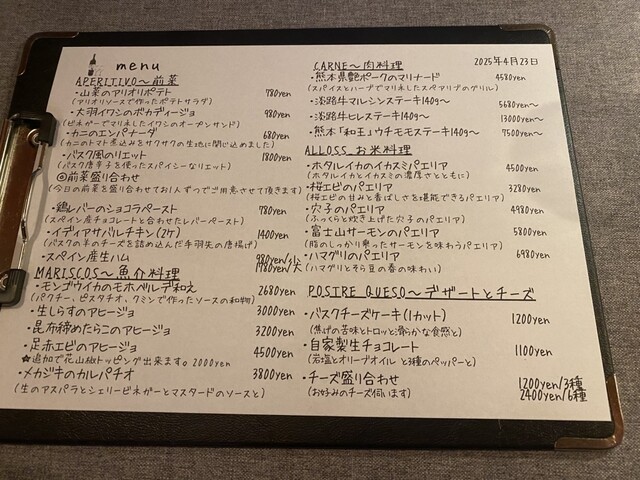 menu
2025年4月23日
APERITIVO～前菜
・山菜のアリオリポテト 780yen
(アリオリソースで作ったポテトサラダ)
・大羽イワシのボカディージョ 980yen
(ビネガーでマリネしたイワシのオープンサンド)
・カニのエンパナーダ 680yen
(カニのトマト煮込みをサクサクの生地に閉じ込めました)
・バスク風のリエット 1800yen
(バスク唐辛子を使ったスパイシーなリエット)
◎前菜盛り合わせ
(今日の前菜を盛り合わせてお1人ずつでご用意させて頂きます)
・鶏レバーのショコラペースト 780yen
(スペイン産チョコレートと合わせたレバーペースト)
・イディアサバルチキン(2ケ) 1400yen
(バスクの羊のチーズを詰め込んだ手羽先の唐揚げ)
・スペイン産生ハム 980yen/
1780yen/
MARISCOS～魚介料理
・モンゴウイカのモホベルデ和え 2680yen
(パクチー、ピスタチオ、クミンで作ったソースの和物)
・生しらすのアヒージョ 3000yen
・昆布締めたらこのアヒージョ 3200yen
・足赤エビのアヒージョ 4500yen
★追加で花山椒トッピング出来ます。2000yen
・メカジキのカルパチオ 3800yen
(生のアスパラとシェリービネガーとマスタードのソースと)
CARNE～肉料理
・熊本県艶ポークのマリナード 4580yen
(スパイスとハーブでマリネしたスペアリブのグリル)
・淡路牛マルシンステーキ140g～ 5680yen～
・淡路牛ヒレステーキ140g～ 13000yen～
・熊本「和王」ウチモモステーキ140g～ 7500yen～
ALLOSS お米料理
・ホタルイカのイカスミパエリア 4500yen
(ホタルイカとイカスミの濃厚さとともに)
・桜エビのパエリア 3280yen
(桜エビの甘みと香ばしさを堪能できるパエリア)
・穴子のパエリア 4980yen
(ふっくらと炊き上げた穴子のパエリア)
・富士山サーモンのパエリア 5800yen
(脂のしっかり乗ったサーモンを味わうパエリア)
・ハマグリのパエリア 6980yen
(ハマグリとそら豆の春の味わい)
POSTRE QUESO～デザートとチーズ
・バスクチーズケーキ(1カット) 1200yen
(焦げの苦味とトロッと滑らかな食感と)
・自家製生チョコレート 1100yen
(岩塩とオリーブオイル と3種のペッパーと)
・チーズ盛り合わせ 1200yen/3種
(お好みのチーズ伺います) 2400yen/6種